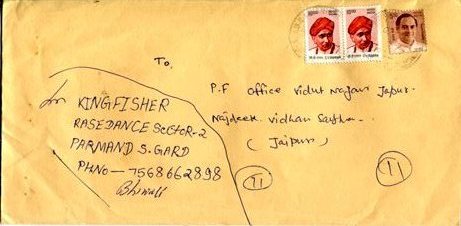 To,
P.F Office vidut nagar Jaipur.
Najdeek. vidhan Sabha.
(Jaipur)
KINGFISHER
RASEDANCE SECTOR-2
PARMAND S. GARD
PHNO - 7568662898
Bhiwadi
TI
TI